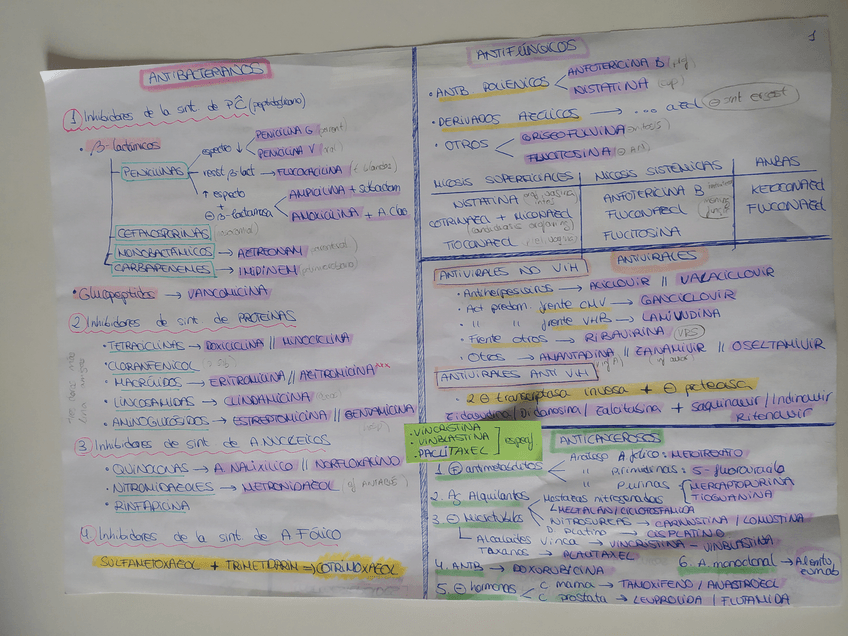 1
ANTIBACTERIANOS
① Inhibidores de la sint de PC (peptidoglicano)
• β-lactámicos
PENICILINAS
espectro ↓
PENICILINA G (parent)
PENICILINA V (oral)
resist β-lact → FLUCOXACILINA
↑ espectro
+
⊖ β-lactamasa
AMPICILINA + sulbactam
AMOXICILINA + A Clav
CEFALOSPORINAS
MONOBACTÁMICOS → AZTREONAM (parenteral)
CARBAPENEMES → IMIPINEM
• Glucopéptidos → VANCOMICINA
② Inhibidores de sint de PROTEÍNAS
• TETRACICLINAS → DOXICICLINA // MINOCICLINA
• CLORANFENICOL
• MACRÓLIDOS → ERITROMICINA // AZITROMICINA
• LINCOSAMIDAS → CLINDAMICINA
• AMINOGLUCÓSIDOS → ESTREPTOMICINA // GENTAMICINA
③ Inhibidores de sint de A NUCLEICOS
• QUINOLONAS → A. NALIXILICO // NORFLOXACINO
• NITROMIDAZOLES → METRONIDAZOL
• RINFAPICINA
④ Inhibidores de la sint de A FÓLICO
SULFAMETOXAZOL + TRIMETROPRIM ⇒ COTRIMOXAZOL
ANTIFÚNGICOS
• ANTB POLIENICOS
ANFOTERICINA B
NISTATINA
• DERIVADOS AZOLICOS → ... azol ⊖ sint ergost
• OTROS
GRISEOFULVINA
FLUCITOSINA
MICOSIS SUPERFICIALES
NISTATINA
COTRIMAZOL + MICONAZOL
TIOCONAZOL
MICOSIS SISTÉMICAS
ANFOTERICINA B
FLUCONAZOL
FLUCITOSINA
AMBAS
KETOCONAZOL
FLUCONAZOL
ANTIVIRALES
ANTIVIRALES NO VIH
• Antiherpesvirus → ACICLOVIR // VALACICLOVIR
• Act predom. frente CMV → GANCICLOVIR
• " " frente VHB → LAMIVUDINA
• Frente otros → RIBAVIRINA (VRS)
• Otros → AMANTADINA // ZANAMIVIR // OSELTAMIVIR
ANTIVIRALES ANTI VIH
• 2 ⊖ transcriptasa inversa + ⊖ proteasa
Zidovudina / Didanosina / Zalcitabina + saquinavir / Indinavir
Ritonavir
• VINCRISTINA
• VINBLASTINA
• PACLITAXEL
ANTICANCEROSOS
1. ⊖ antimetabolitos
Análogo A fólico: METOTREXATO
" Pirimidinas: 5-fluorouracilo
" Purinas
MERCAPTOPURINA
TIOGUANINA
2. Ag Alquilantes
Mostazas nitrogenadas
MELFALAN / CICLOFOSFAMIDA
NITROSUREAS → CARMUSTINA / LOMUSTINA
D. Platino → CISPLATINO
3. ⊖ Microtúbulos
Alcaloides Vinca → VINCRISTINA - VINBLASTINA
Taxanos → PLAUTAXEL
4. ANTB → DOXORUBICINA
5. ⊖ hormonas
C mama → TAMOXIFENO / ANASTROZOL
C prostata → LEUPROLIDA / FLUTAMIDA
6. A. monoclonal → Alemtuzumab